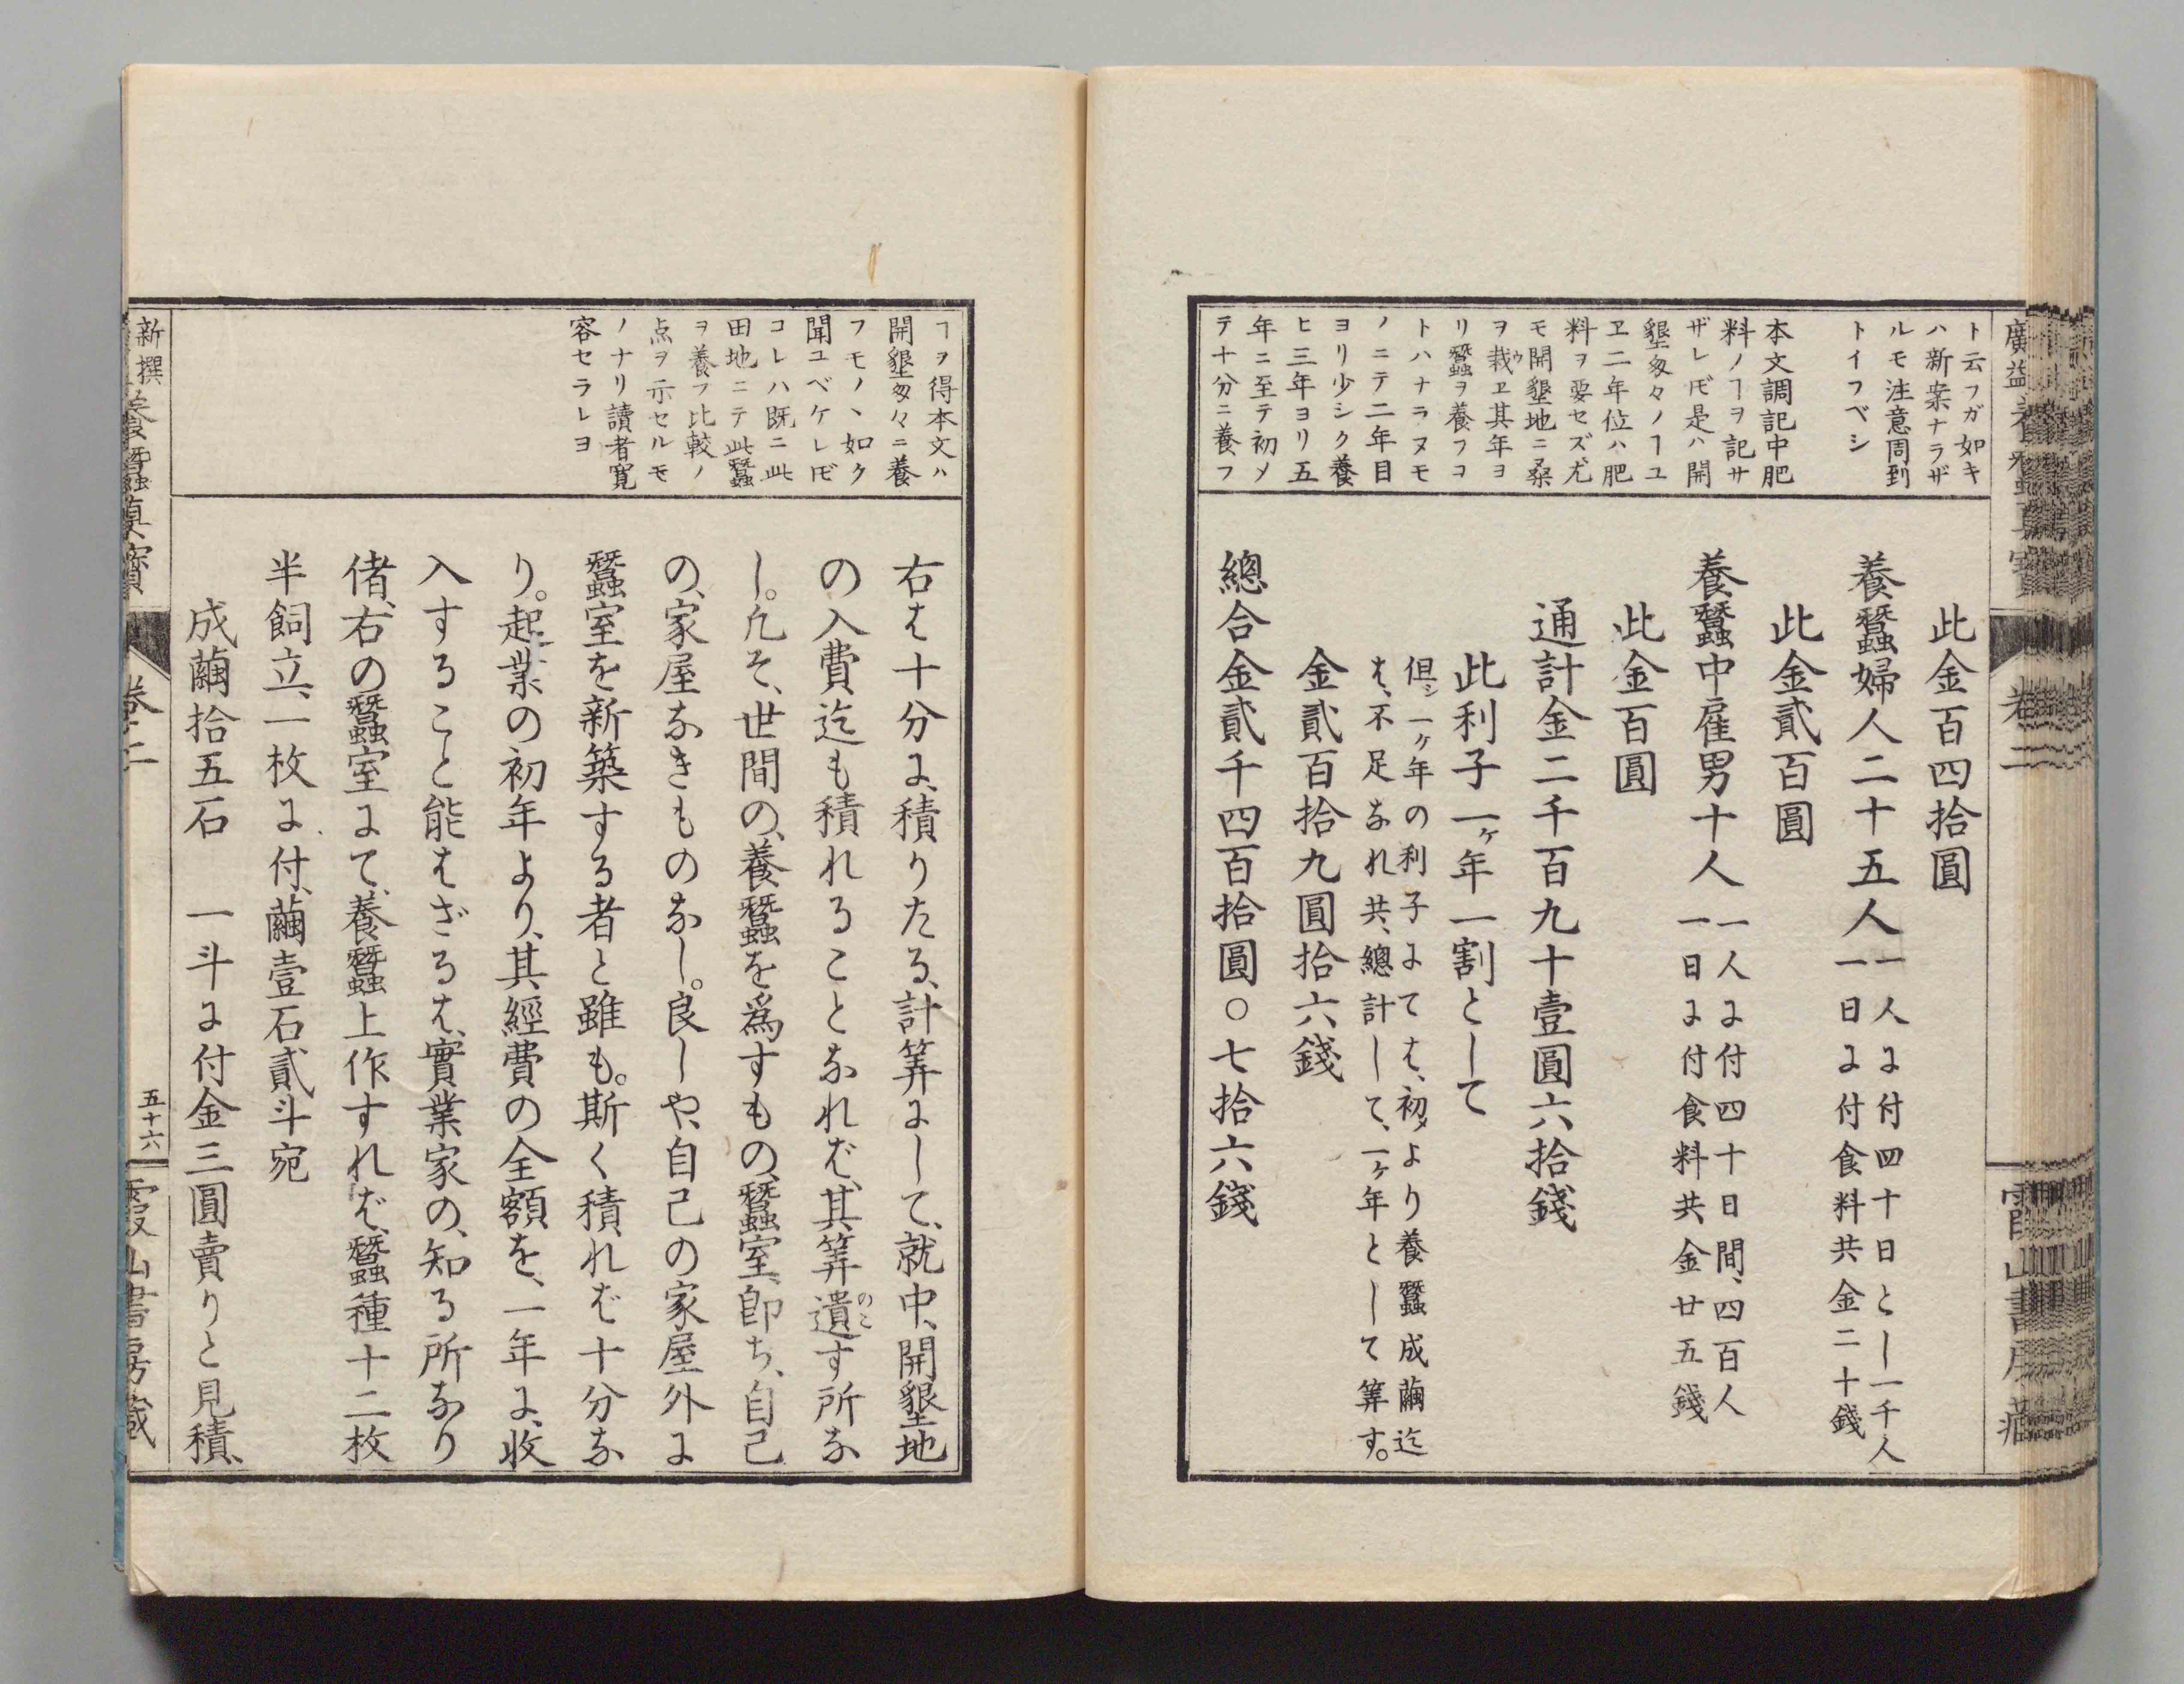 ト云フガ如キ
ハ新案ナラザ
ルモ注意周到
トイフベシ
本文調記中肥
料ノヿヲ記サ
ザレ𪜈是ハ開
墾匆々ノヿユ
ヱ二年位ハ肥
料ヲ要セズ尤
モ開墾地ニ桑
ヲ栽ヱ其年ヨ
リ蠶ヲ養フコ
トハナラヌモ
ノニテ二年目
ヨリ少シク養
ヒ三年ヨリ五
年ニ至テ初メ
テ十分ニ養フ
此金百四拾圓
養蠶婦人二十五人
一人に付四十日とし一千人
一日に付食料共金二十錢
此金貳百圓
養蠶中雇男十人
一人に付四十日間、四百人
一日に付食料共金廿五錢
此金百圓
通計金二千百九十壹圓六拾錢
此利子一ヶ年一割として
但シ一ヶ年の利子にては、初メより養蠶成繭迄
は、不足なれ共、總計して、一ヶ年として筭す。
金貳百拾九圓拾六錢
總合金貳千四百拾圓〇七拾六錢
ヿヲ得本文ハ
開墾匆々ニ養
フモノヽ如ク
聞ユベケレ𪜈
コレハ既ニ此
田地ニテ此蠶
ヲ養フ比較ノ
点ヲ示セルモ
ノナリ讀者寬
容セラレヨ
右は十分に、積りたる、計筭にして、就中、開墾地
の入費迄も積れることなれば、其筭遺す所な
し。凡そ、世間の、養蠶を爲すもの、蠶室、卽ち、自己
の、家屋なきものなし。良しや、自己の家屋外に
蠶室を新築する者と雖も。斯く積れば十分な
り。起業の初年より、其經費の全額を、一年に、收
入すること能はざるは、實業家の、知る所なり
偖、右の蠶室にて、養蠶上作すれば、蠶種十二枚
半飼立、一枚に、付、繭壹石貳斗宛
成繭拾五石　一斗に付金三圓賣りと見積、
新撰養蠶眞寶
卷二
五十六
霞山書房藏